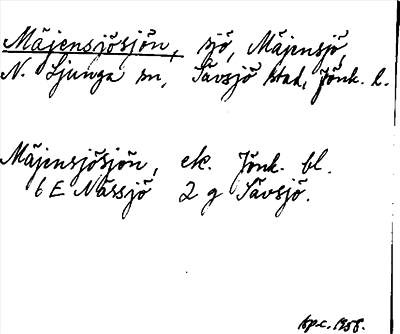 Mäjensjösjön, sjö, Mäjensjö,
N. Ljunga sn, Sävsjö stad, Jönk. l.
Mäjensjösjön, ek. Jönk. bl.
6 E Nässjö 2 g Sävsjö.
1958.